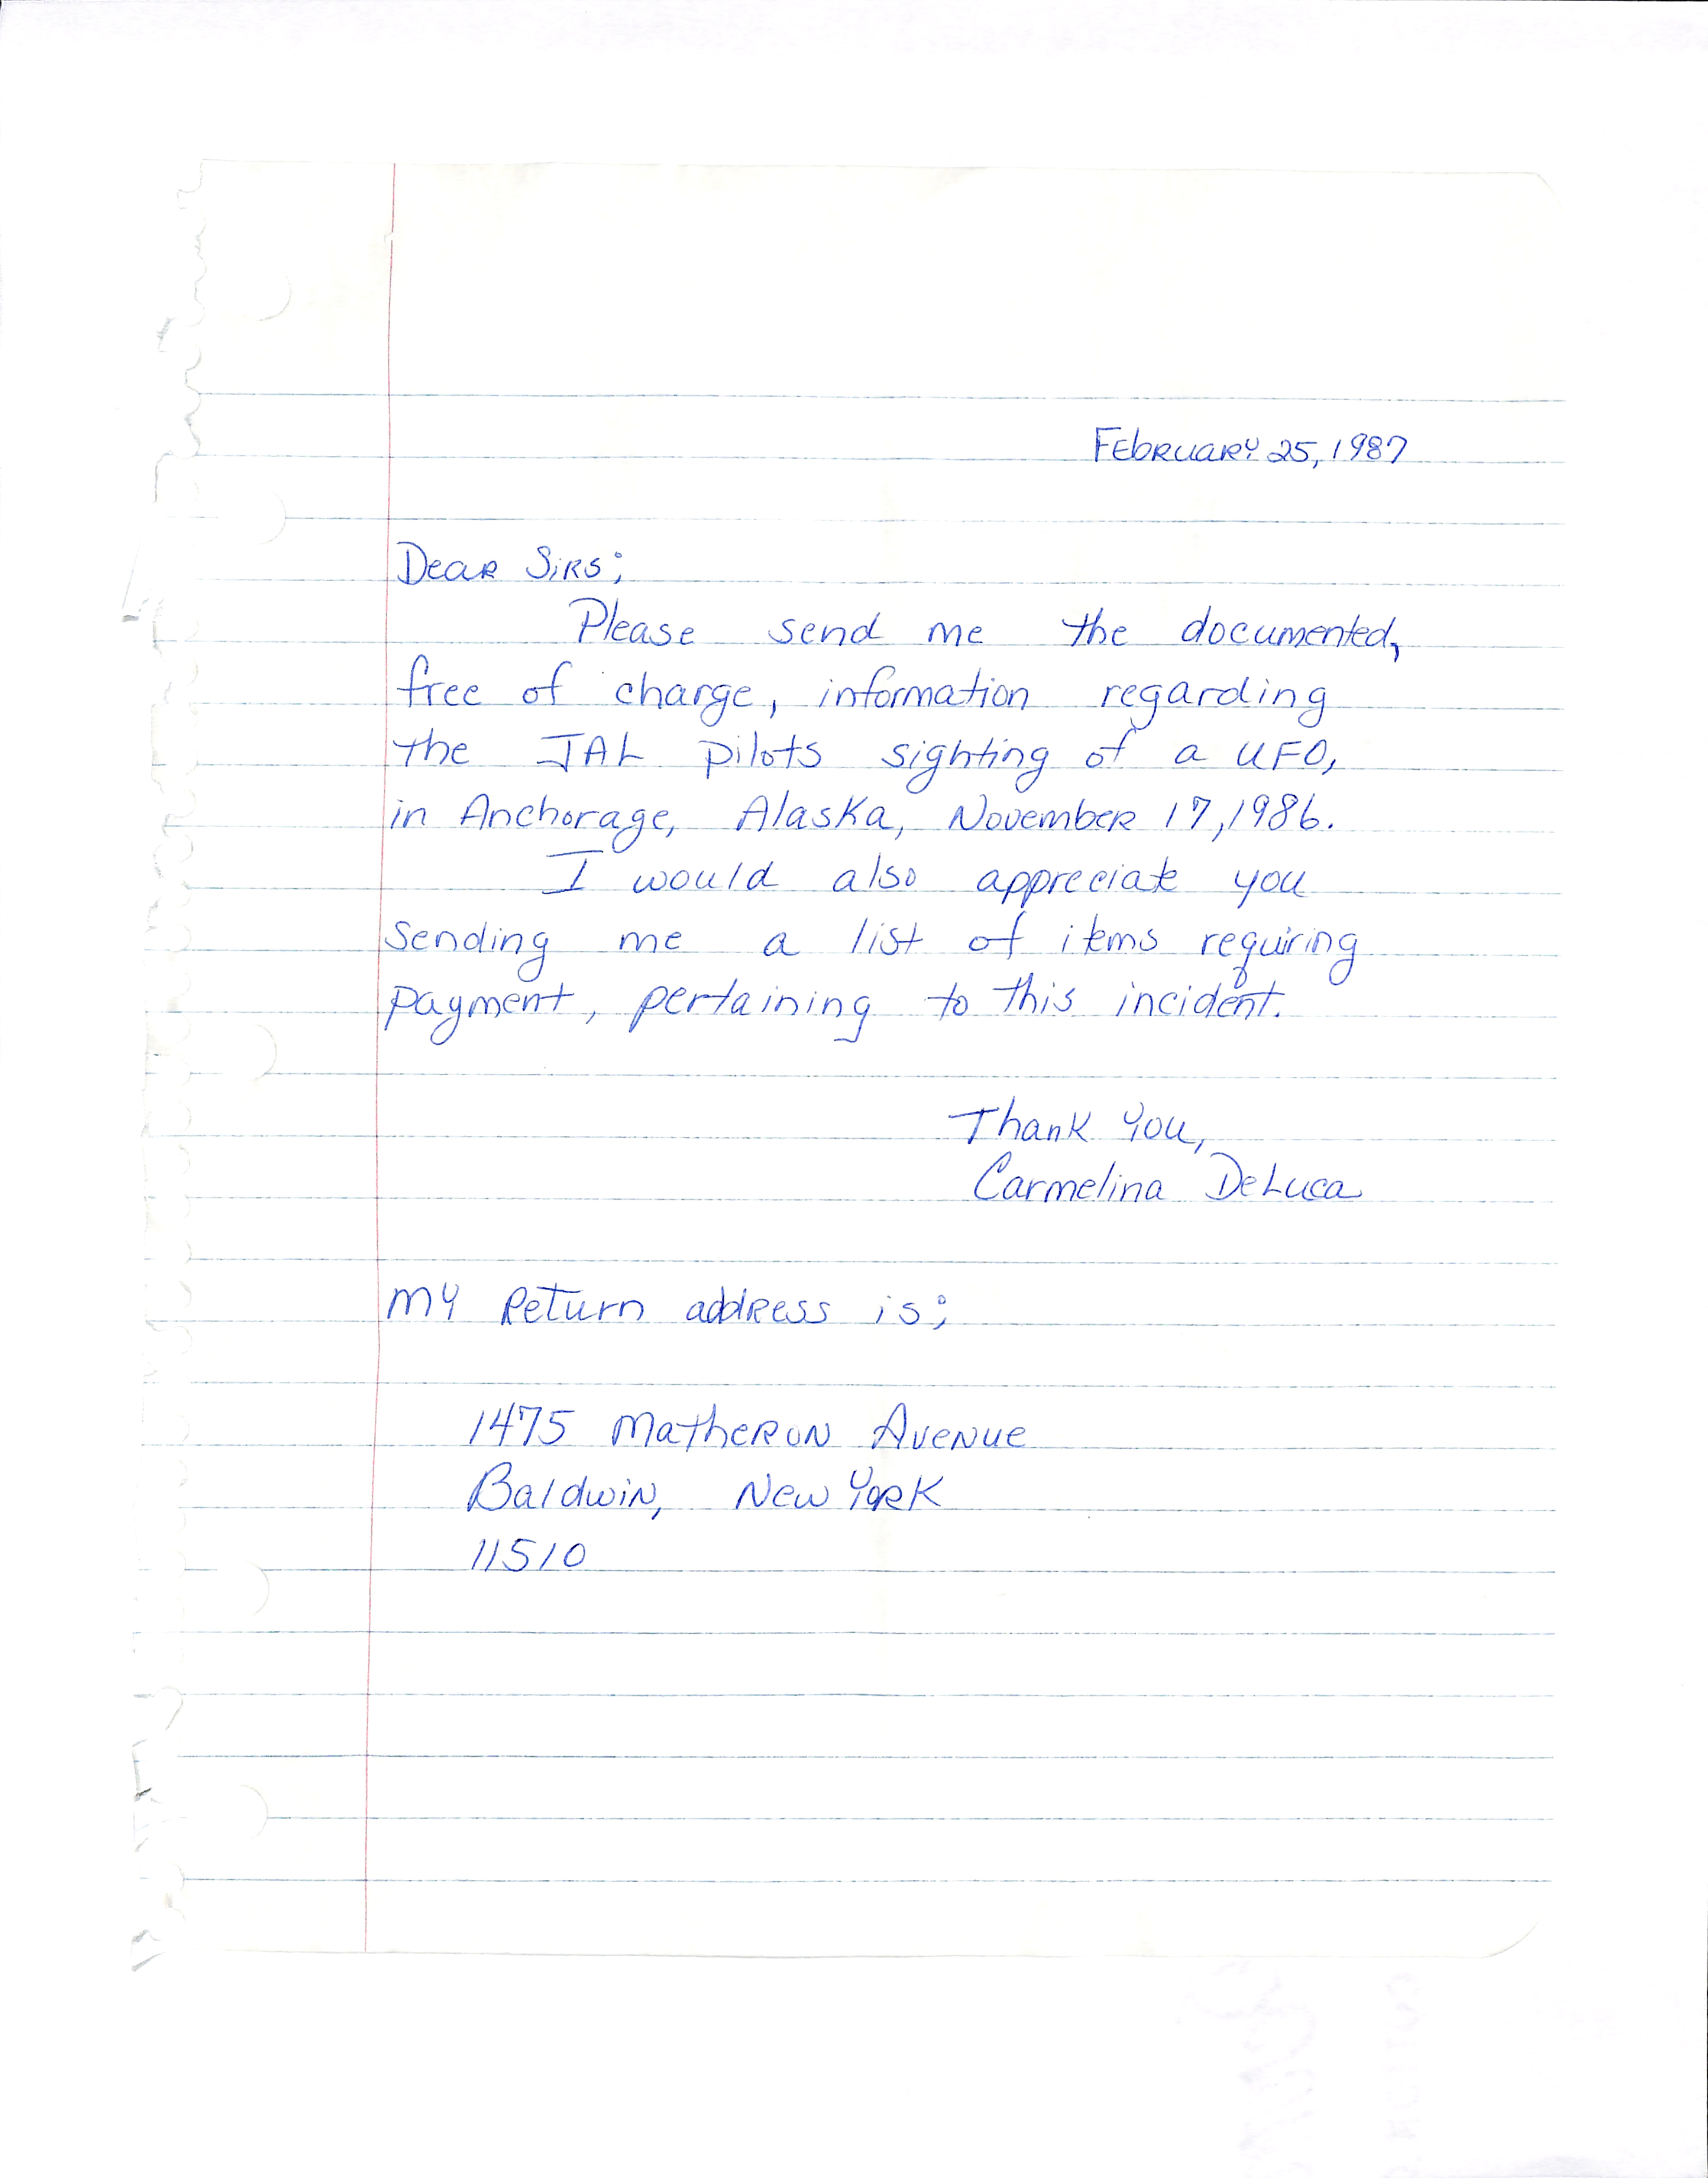 February 25, 1987
Dear Sirs;
Please send me the documented,
free of charge, information regarding
the JAL pilots sighting of a UFO,
in Anchorage, Alaska, November 17, 1986.
I would also appreciate you
sending me a list of items requiring
payment, pertaining to this incident.
Thank You,
Carmelina DeLuca
My Return address is;
1475 Matheron Avenue
Baldwin, New York
11510